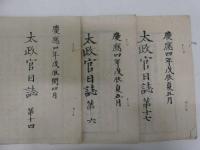 慶應四年戊辰五月
太政官日誌 第十七
慶應四年戊辰五月
太政官日誌 第六
慶應四年戊辰閏四月
太政官日誌 第十四